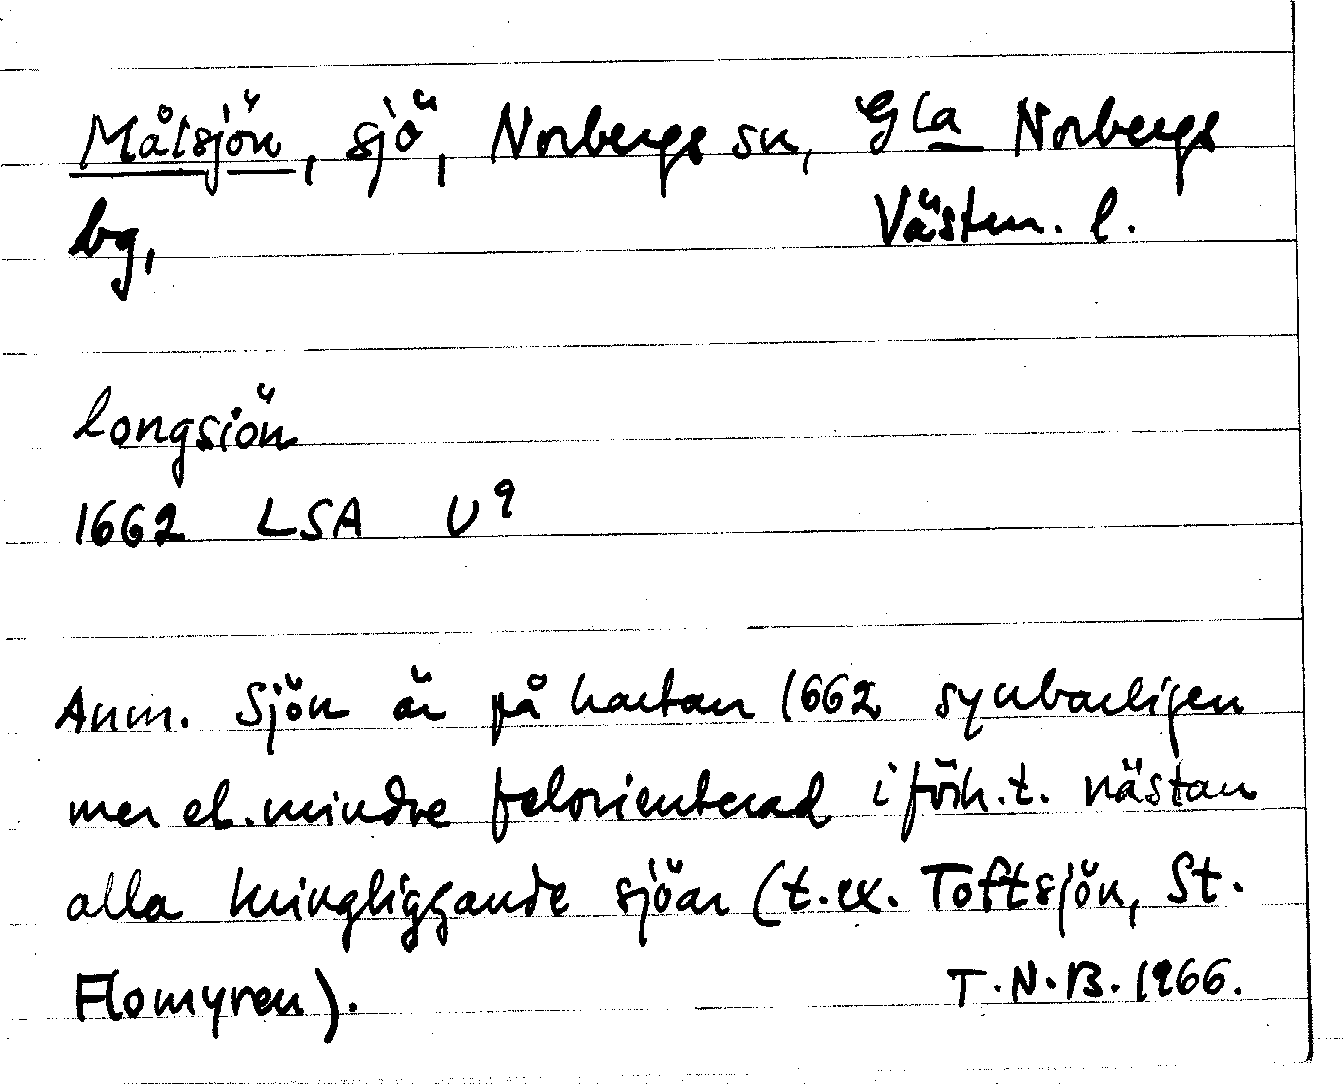 Målsjön, sjö, Norbergs sn, Gla Norbergs
bg, Västm. l.
longsiön
1662 LSA U⁹
Anm. Sjön är på kartan 1662 synbarligen
mer el. mindre felorienterad i förh. t. nästan
alla kringliggande sjöar (t.ex. Toftsjön, St.
Flomyren). T.N.B. 1966.